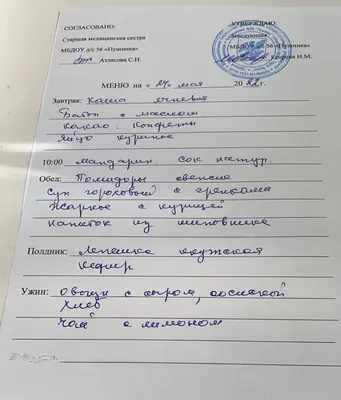 СОГЛАСОВАНО:
УТВЕРЖДАЮ:
Старшая медицинская сестра
Заведующая
МБДОУ д/с 56 «Пушинка»
МБДОУ д/с 56 «Пушинка»
Атласова С.Н.
Егорова И.М.
МЕНЮ на «27» мая 2022г.
Завтрак: Каша ячневая
Батон с маслом
Какао. Конфеты
Яйцо куриное
10:00 мандарин. сок натур.
Обед: Помидоры свежие
Суп гороховый с гренками
Жаркое с курицей
напиток из шиповника
Полдник: Лепешка якутская
Кефир
Ужин: Овощи с сыром,
Хлеб
Чай с лимоном